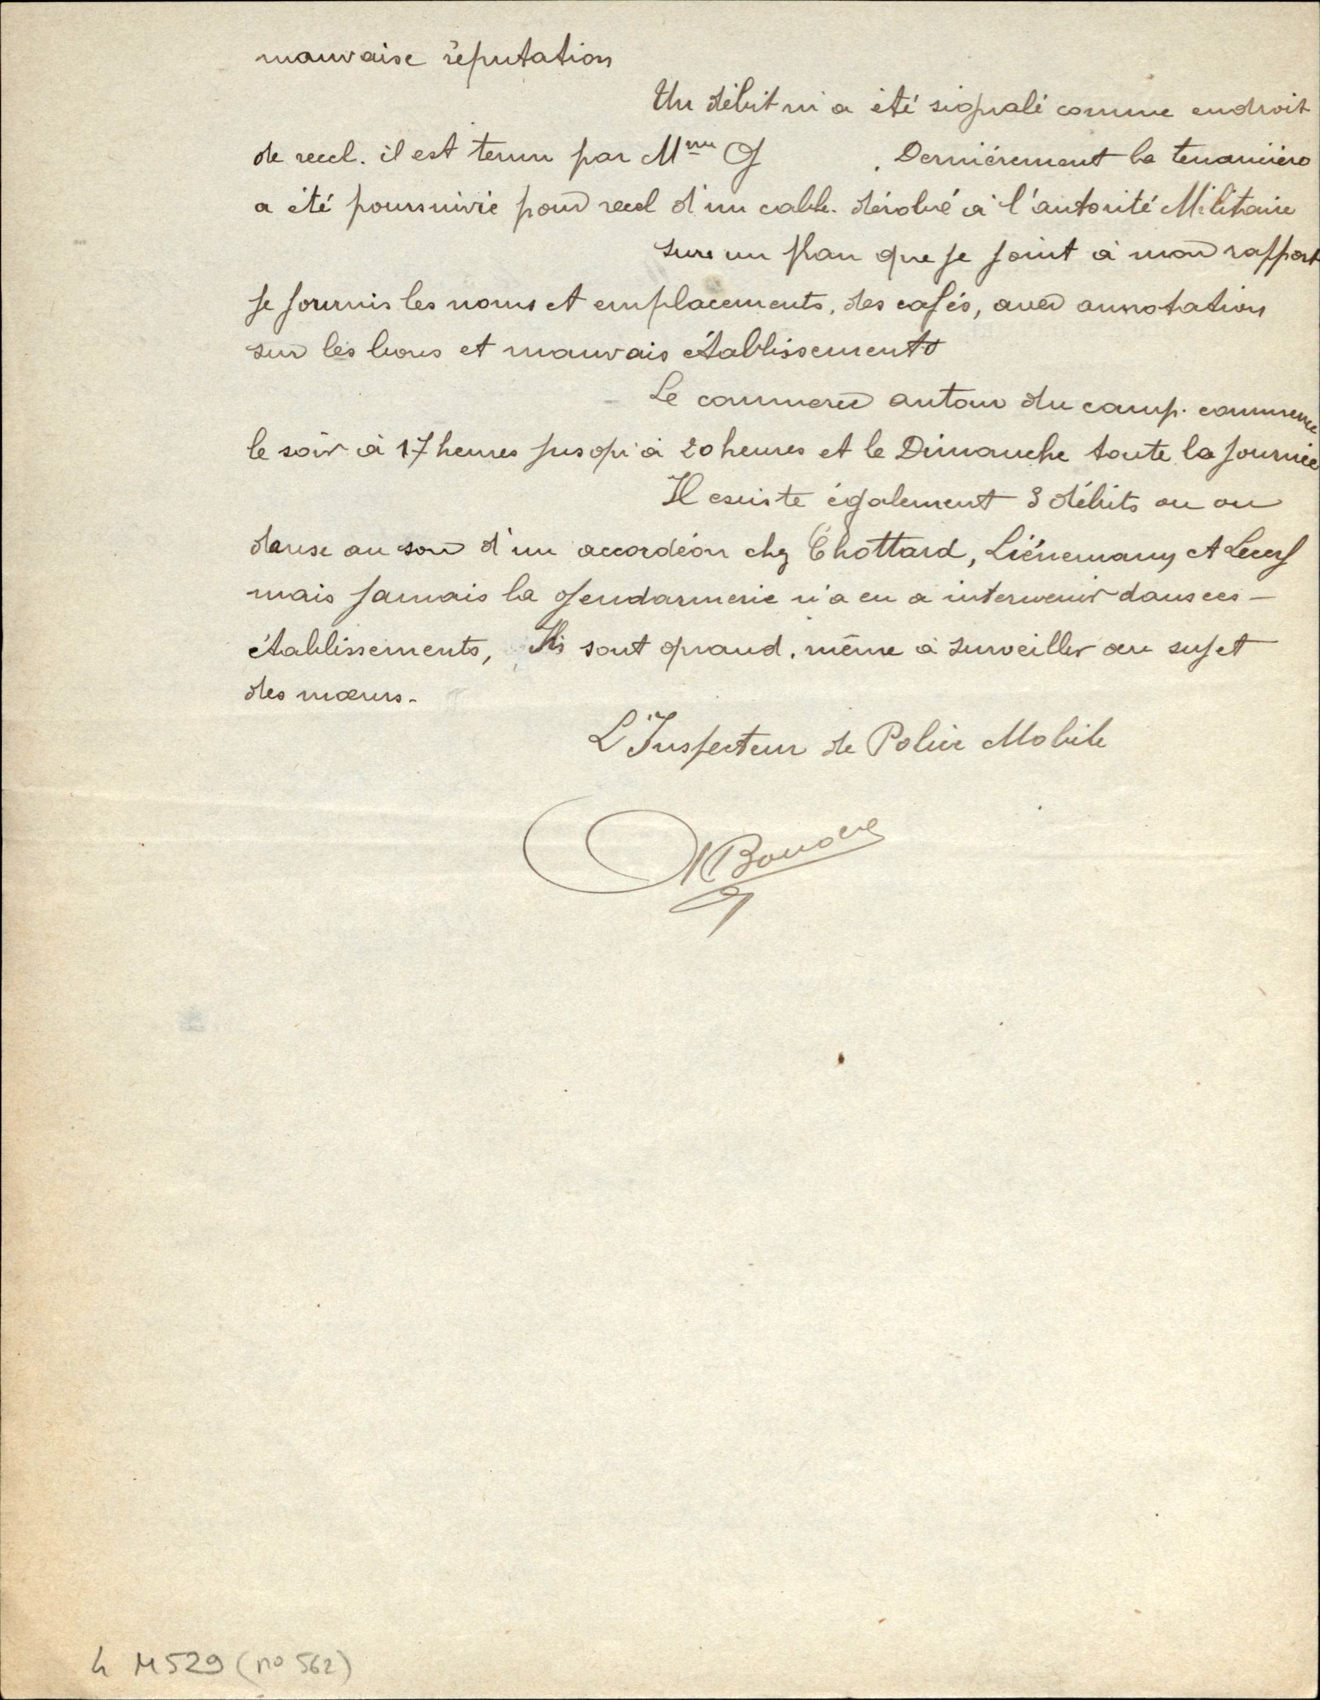 mauvaise réputation
Un débit m'a été signalé comme endroit
de recel. il est tenu par Mme G . Dernièrement la tenancière
a été poursuivie pour recel d'un cable dérobé à l'autorité Militaire
sure un plan que je joint à mon rapport
je fournis les noms et emplacements, des cafés, avec annotation
sur les bons et mauvais établissements
Le commerce autour du camp. commence
le soir à 17 heures jusqu'à 20 heures et le Dimanche toute la journée
Il existe également 3 débits ou on
danse au son d'un accordéon chez Chottard, et
mais jamais la gendarmerie n'a eu a intervenir dans ces -
établissements, Ils sont quand. même à surveiller au sujet
des mœurs.
L'Inspecteur de Police Mobile
4 M 529 (no 562)